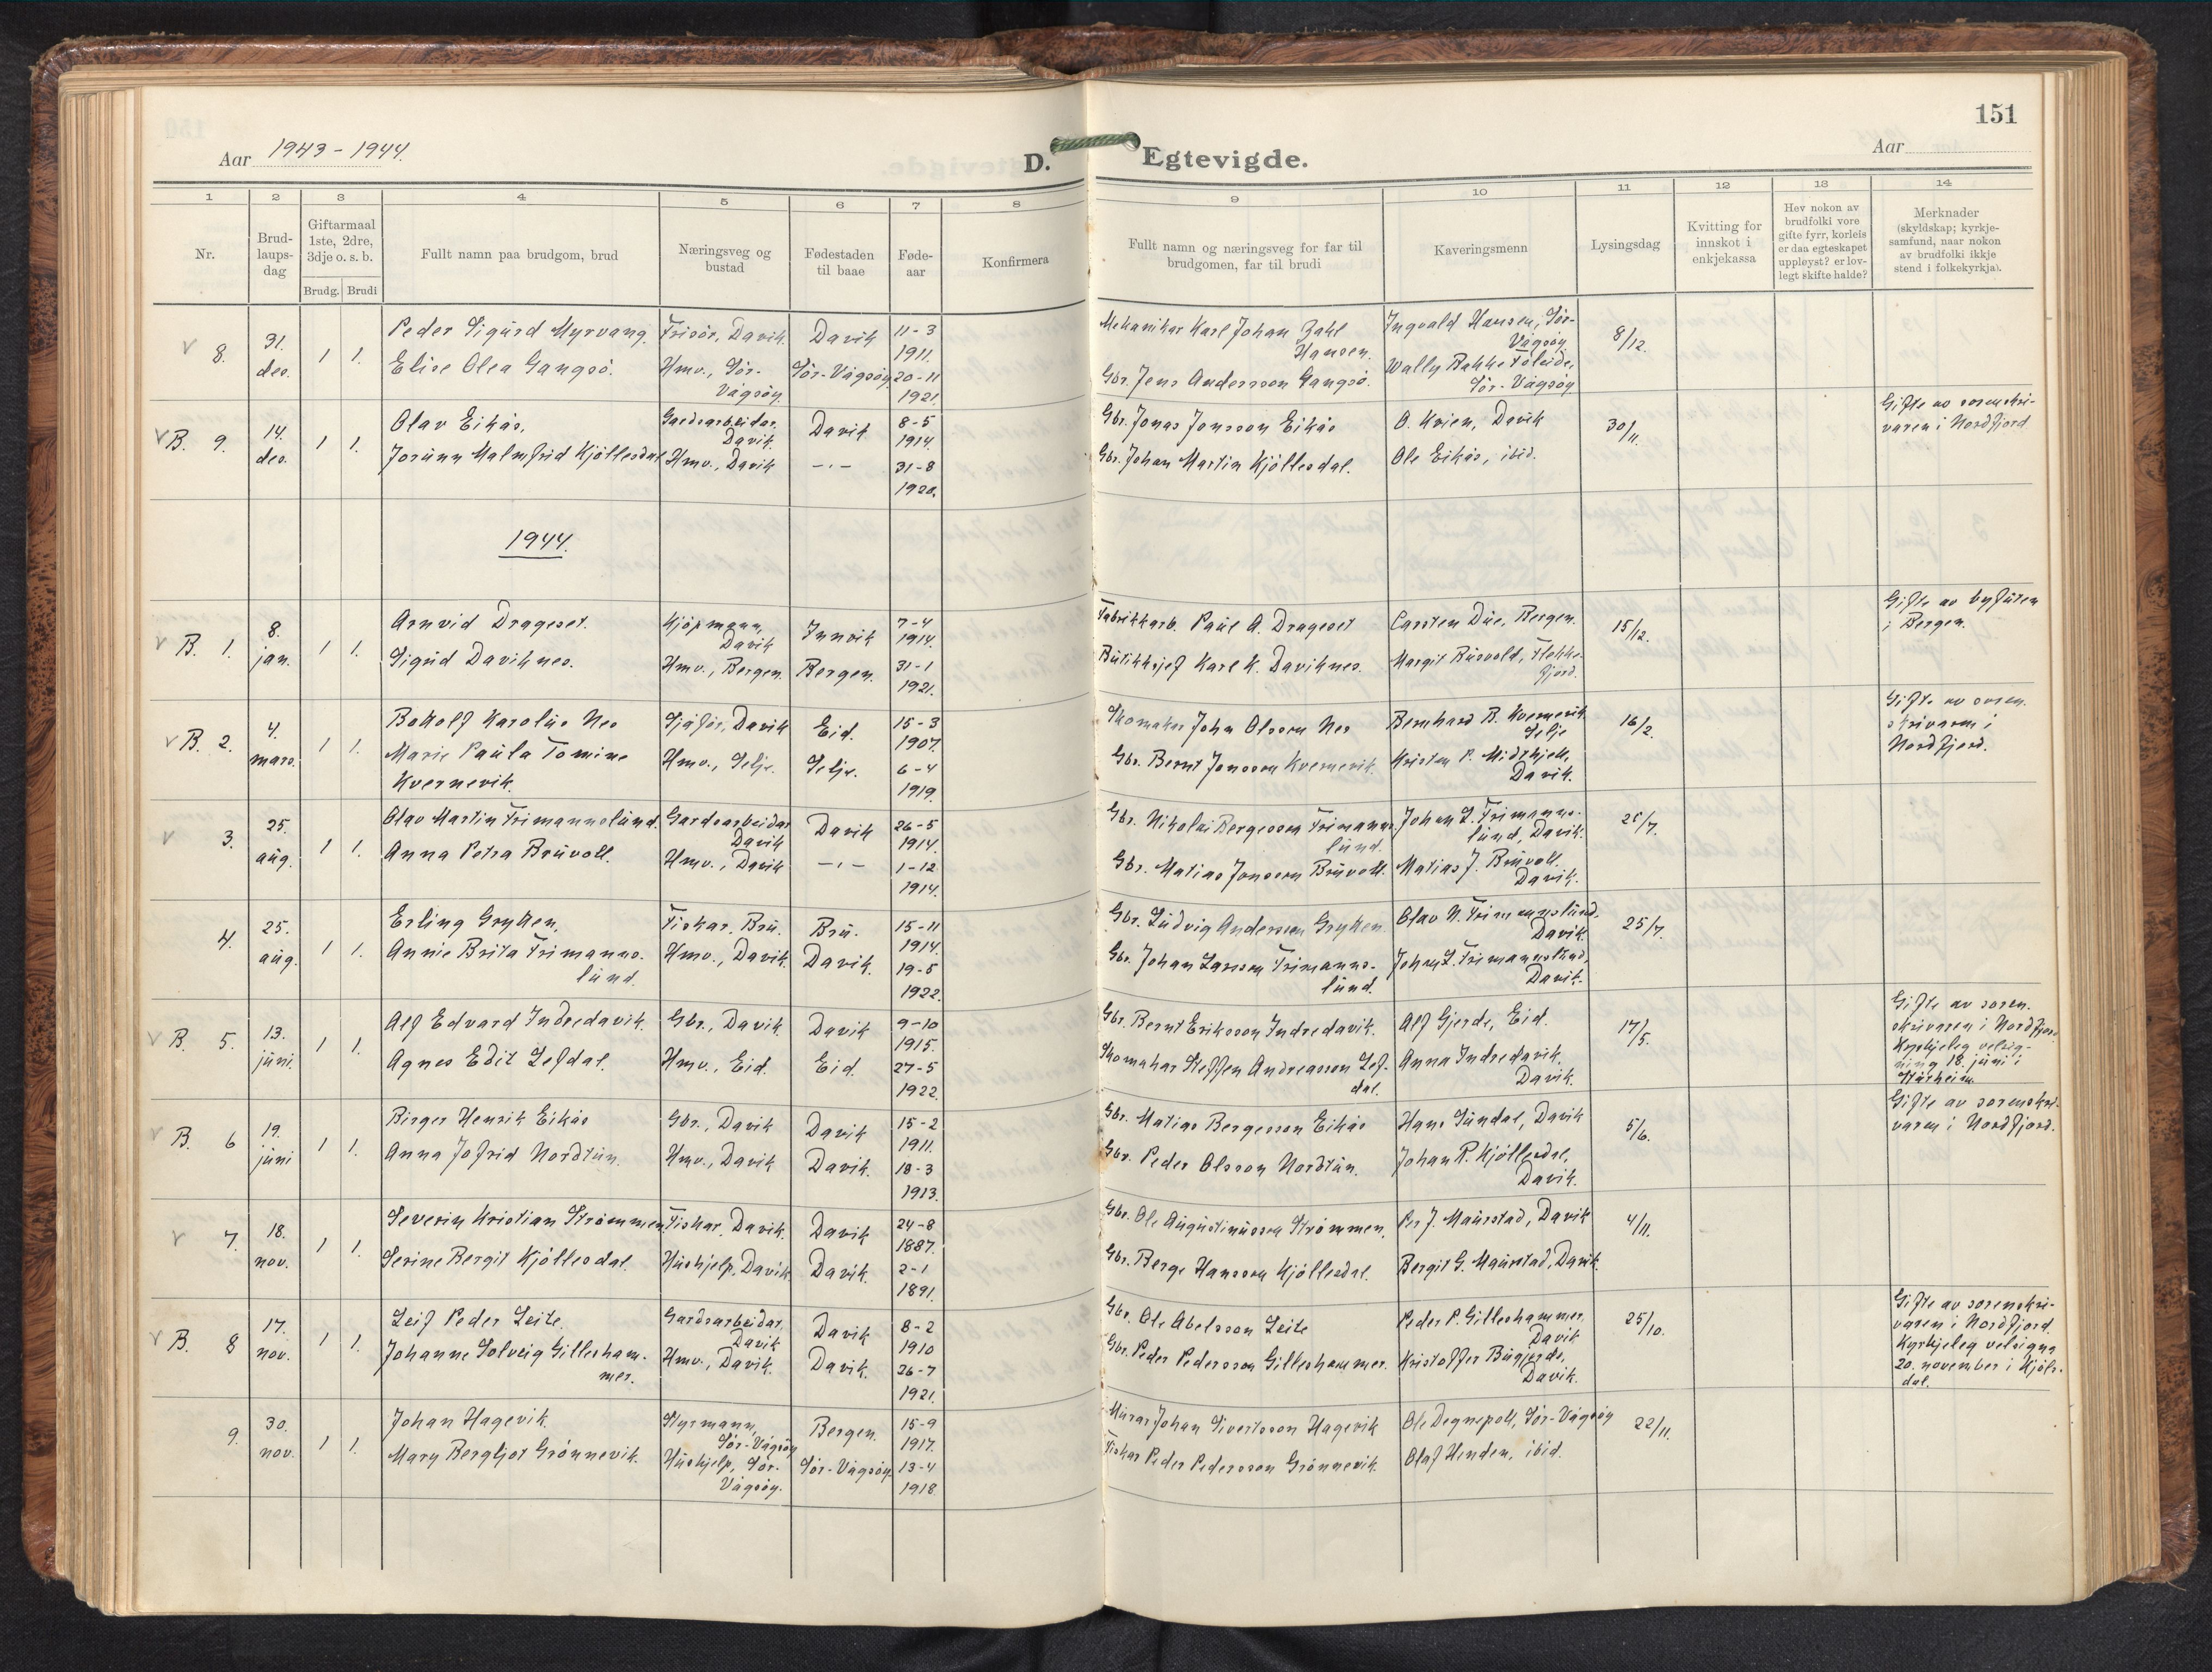 151
Aar 1943 - 1944.
D. Egtevigde.
Aar
1 2 3 4 5 6 7 8 9 10 11 12 13 14
Nr.
Brud-
laups-
dag
Giftarmaal
1ste, 2dre,
3dje o. s. b.
Brudg. Brudi
Fullt namn paa brudgom, brud
Næringsveg og
bustad
Fødestaden
til baae
Føde-
aar
Konfirmera
Fullt namn og næringsveg for far til
brudgomen, far til brudi
Kaveringsmenn
Lysingsdag
Kvitting for
innskot i
enkjekassa
Hev nokon av
brudfolki vore
gifte fyrr, korleis
er daa egteskapet
uppløyst? er lov-
legt skifte halde?
Merknader
(skyldskap; kyrkje-
samfund, naar nokon
av brudfolki ikkje
stend i folkekyrkja).
V 8.
31.
des.
1 1.
Peder Sigurd Myrvang.
Elise Olea Gangsö.
Frisör, Davik.
Hmv., Sör-
Vågsöy.
Davik
Sör-Vågsöy
11-3
1911.
20-11
1921.
Mekanikar Karl Johan Zahl
Hansen.
Gbr. Jens Andersson Gangsö.
Ingvald Hansen, Sör-
Vågsöy
Wally Bakke Föleide,
Sör-Vågsöy
8/12.
V B. 9.
14.
des.
1 1.
Olav Eikås,
Jorunn Malmfrid Kjöllesdal
Gardsarbeidar,
Davik
Hmv., Davik
Davik
-"-
8-5
1914
31-8
1920.
Gbr. Jonas Jonsson Eikås
Gbr. Johan Martin Kjöllesdal.
O. Kvien, Davik
Ole Eikås, ibid.
30/11.
Gifte av sorenskri-
varen i Nordfjord
1944.
V B. 1.
8.
jan.
1 1.
Arnvid Drageset.
Sigrid Daviknes.
Kjöpmann,
Davik
Hmv., Bergen.
Innvik
Bergen.
7-4
1914.
31-1
1921.
Fabrikkarb. Paul A. Drageset
Butikksjef Karl K. Daviknes.
Carsten Due, Bergen.
Margit Rusvold, Flekke-
fjord.
15/12.
Gifte av byfuten
i Bergen.
V B. 2.
4.
mars.
1 1.
Botolf Karolus Nes
Marie Paula Tomine
Kvernevik.
Sjåför, Davik
Hmv., Selje.
Eid.
Selje.
15-3
1907.
6-4
1919.
Skomakar John Olsson Nes
Gbr. Bernt Jonsson Kvernevik.
Bernhard B. Kvernevik
Selje
Kristen P. Midthjell,
Davik.
16/2.
Gifte av soren-
skrivaren i
Nordfjord.
V 3.
25.
aug.
1 1.
Olav Martin Frimannslund.
Anna Petra Bruvoll.
Gardsarbeidar
Davik
Hmv., Davik
Davik
-"-
26-5
1914.
1-12
1914.
Gbr. Nikolai Bergesson Frimanns-
lund.
Gbr. Matias Jonsson Bruvoll.
Johan L. Frimanns-
lund, Davik.
Matias J. Bruvoll.
Davik.
25/7.
4.
25.
aug.
1 1.
Erling Grytten.
Annie Brita Frimanns-
lund.
Fiskar, Bru.
Hmv., Davik.
Bru.
Davik.
15-11
1914.
19-5
1922.
Gbr. Ludvig Anderssen Grytten.
Gbr. Johan Larsson Frimanns-
lund.
Olav N. Frimannslund.
Davik.
Johan L. Frimannslund,
Davik.
25/7.
V B. 5.
13.
juni.
1 1.
Alf Edvard Indredavik.
Agnes Edit Lefdal.
Gbr., Davik
Hmv., Eid.
Davik
Eid.
9-10
1915.
27-5
1922.
Gbr. Bernt Eriksson Indredavik.
Skomakar Steffen Andreasson Lef-
dal.
Alf Gjerde, Eid.
Anna Indredavik.
Davik.
17/5.
Gifte av soren-
skrivaren i Nordfjord.
Kyrkjeleg velsig-
ning 18. juni i
Stårheim.
V B. 6
19.
juni
1 1.
Birger Henrik Eikås
Anna Jofrid Nordtun.
Gbr., Davik
Hmv., Davik
Davik
Davik.
15-2
1911.
18-3
1913.
Gbr. Matias Bergesson Eikås
Gbr. Peder Olsson Nordtun.
Hans Sundal, Davik
Johan R. Kjöllesdal,
Davik.
5/6.
Gifte av sorenskri-
varen i Nordfjord.
V 7.
18.
nov.
1 1.
Severin Kristian Strömmen
Serine Bergit Kjöllesdal.
Fiskar, Davik.
Hushjelp, Davik
Davik
Davik.
24-8
1887.
2-1
1891.
Gbr. Ole Augustinusson Strömmen.
Gbr. Berge Hansson Kjöllesdal.
Per J. Maurstad, Davik
Bergit G. Maurstad, Davik.
4/11.
V B. 8
17.
nov.
1 1.
Leif Peder Leite.
Johanne Solveig Gillesham-
mer.
Gardsarbeidar,
Davik
Hmv., Davik.
Davik
Davik.
8-2
1910
26-7
1921.
Gbr. Ole Abelsson Leite
Gbr. Peder Pedersson Gilleshammer.
Peder P. Gilleshammer,
Davik
Kristoffer Bugjerde,
Davik.
25/10.
Gifte av sorenskri-
varen i Nordfjord.
Kyrkjeleg velsigna
20. november i Kjöls-
dal.
9.
30.
nov.
1 1.
Johan Hagevik
Mary Bergljot Grönnevik.
Styrmann,
Sör-Vågsöy
Hushjelp, Sör-
Vågsöy.
Bergen.
Sör-Vågsöy.
15-9
1917.
13-4
1918.
Murar Johan Sivertsson Hagevik
Fiskar Peder Pedersson Grönnevik.
Ole Degnepoll, Sör-Vågsöy
Olaf Henden, ibid.
22/11.